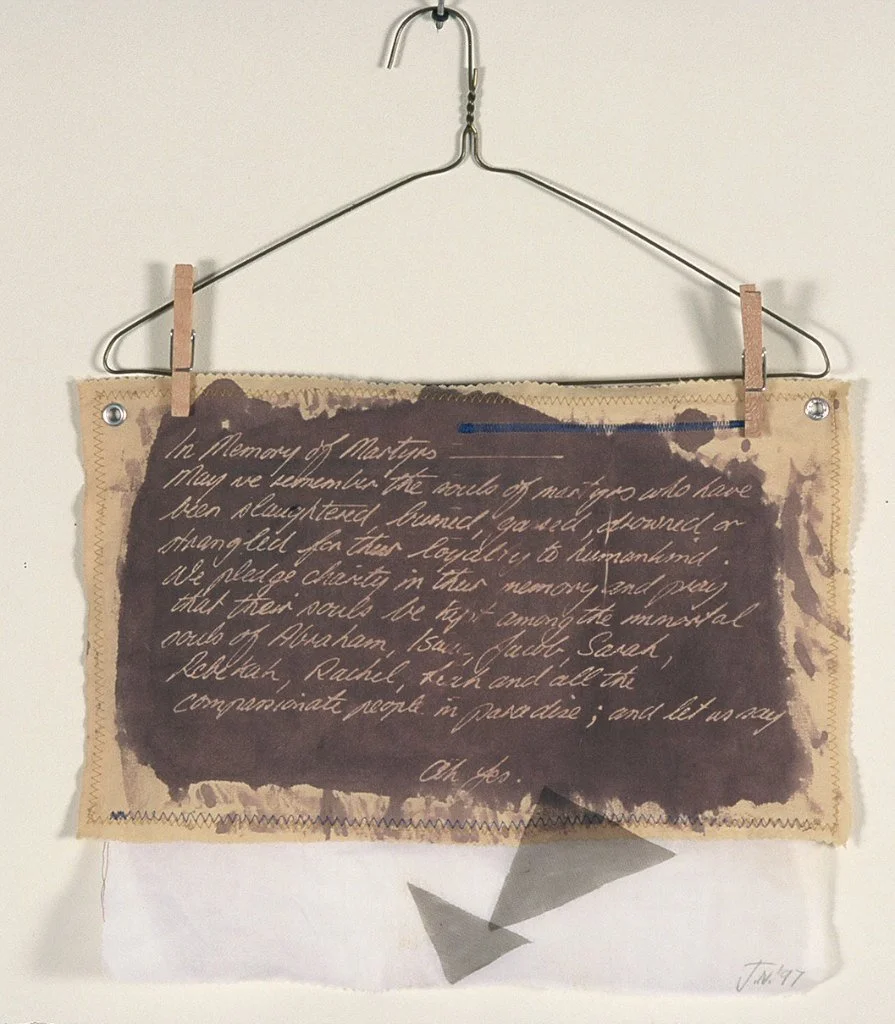 In Memory of Martyrs
May we remember the souls of martyrs who have
been slaughtered, burned, gassed, drowned or
strangled for their loyalty to humankind.
We pledge charity in their memory and pray
that their souls be kept among the immortal
souls of Abraham, Isaac, Jacob, Sarah,
Rebekah, Rachel, Leah and all the
compassionate people in paradise; and let us say
Ah Yes.
J.N. '97